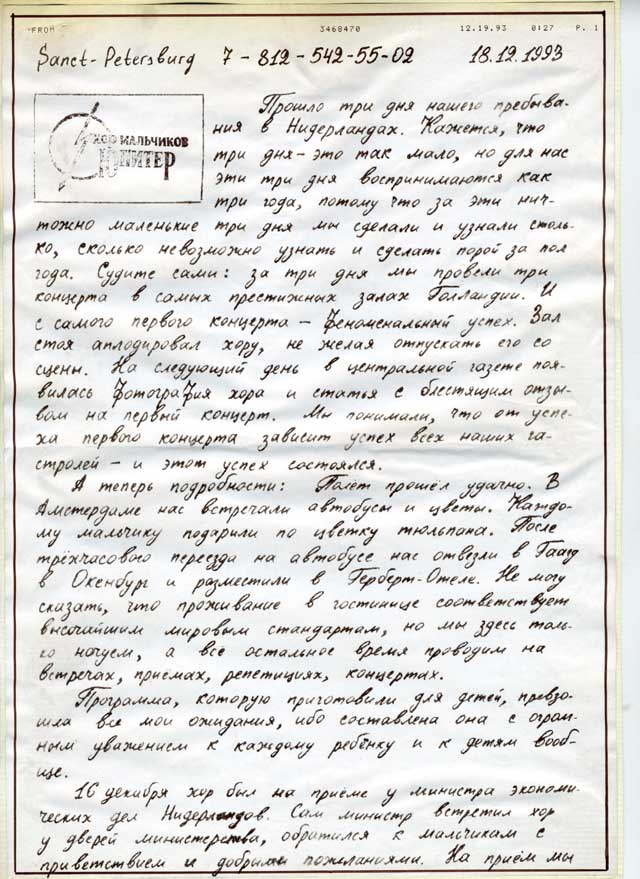 FROM 3468470 12.19.93 0:27 P. 1
Sanct-Petersburg 7-812-542-55-02 18.12.1993
ХОР МАЛЬЧИКОВ
ЮПИТЕР
Прошло три дня нашего пребыва-
ния в Нидерландах. Кажется, что
три дня - это так мало, но для нас
эти три дня воспринимаются как
три года, потому что за эти нич-
тожно маленькие три дня мы сделали и узнали столь-
ко, сколько невозможно узнать и сделать порой за пол
года. Судите сами: за три дня мы провели три
концерта в самых престижных залах Голландии. И
с самого первого концерта - феноменальный успех. Зал
стоя аплодировал хору, не желая отпускать его со
сцены. На следующий день в центральной газете поя-
вилась фотография хора и статья с блестящим отзы-
вом на первый концерт. Мы понимали, что от успе-
ха первого концерта зависит успех всех наших га-
стролей - и этот успех состоялся.
А теперь подробности: Полёт прошёл удачно. В
Амстердаме нас встречали автобусы и цветы. Каждо-
му мальчику подарили по цветку тюльпана. После
трёхчасового переезда на автобусе нас отвезли в Гаагу
в Окенбург и разместили в Герберт-Отеле. Не могу
сказать, что проживание в гостинице соответствует
высочайшим мировым стандартам, но мы здесь толь-
ко ночуем, а всё остальное время проводим на
встречах, приёмах, репетициях, концертах.
Программа, которую приготовили для детей, превзо-
шла все мои ожидания, ибо составлена она с огром-
ным уважением к каждому ребёнку и к детям вооб-
ще.
16 декабря хор был на приёме у министра экономи-
ческих дел Нидерландов. Сам министр встретил хор
у дверей министерства, обратился к мальчикам с
приветствием и добрыми пожеланиями. На приём мы